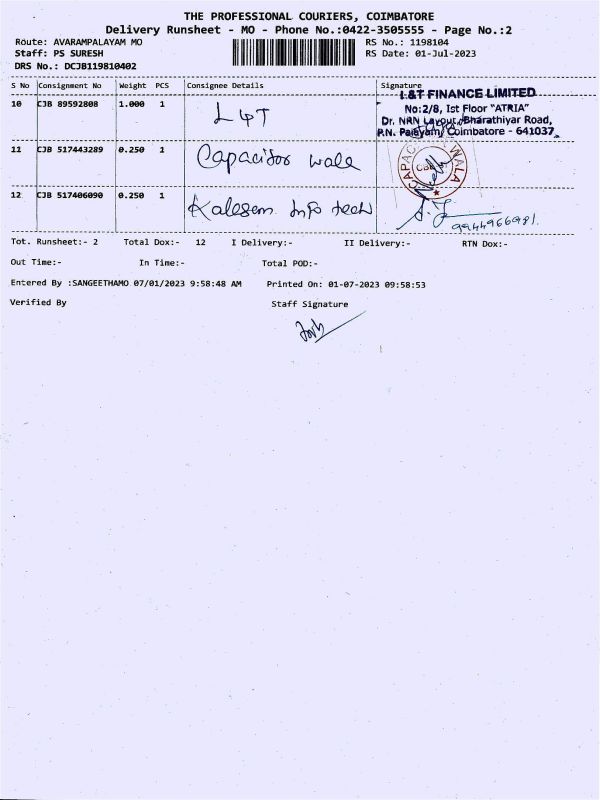 THE PROFESSIONAL COURIERS, COIMBATORE
Delivery Runsheet - MO - Phone No.:0422-3505555 - Page No.:2
Route: AVARAMPALAYAM MO
RS No.: 1198104
Staff: PS SURESH
RS Date: 01-Jul-2023
DRS No.: DCJB119810402
S No Consignment No Weight PCS Consignee Details Signature
10 CJB 89592808 1.000 1 L&T
L&T FINANCE LIMITED
No:2/8, Ist Floor "ATRIA"
Dr. NRN Layout, Bharathiyar Road,
P.N. Palayam, Coimbatore - 641037.
11 CJB 517443289 0.250 1 Capacitor wala
CAPACITOR WALA
12 CJB 517406090 0.250 1 Kalesem Info tech
9944966981.
Tot. Runsheet:- 2 Total Dox:- 12 I Delivery:- II Delivery:- RTN Dox:-
Out Time:- In Time:- Total POD:-
Entered By :SANGEETHAMO 07/01/2023 9:58:48 AM Printed On: 01-07-2023 09:58:53
Verified By Staff Signature